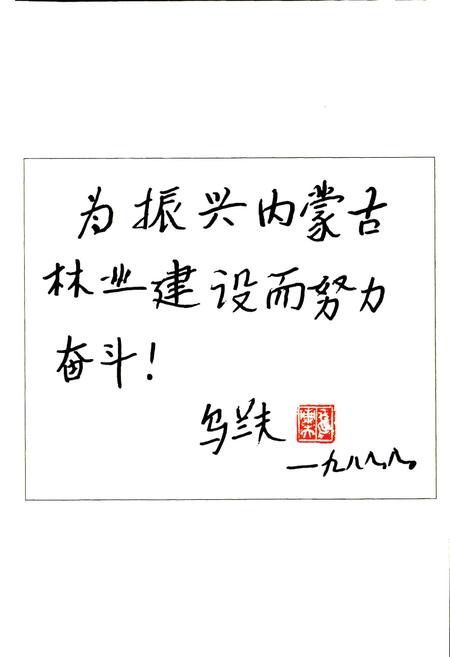 为振兴内蒙古
林业建设而努力
奋斗！
乌兰夫
一九八八.八.